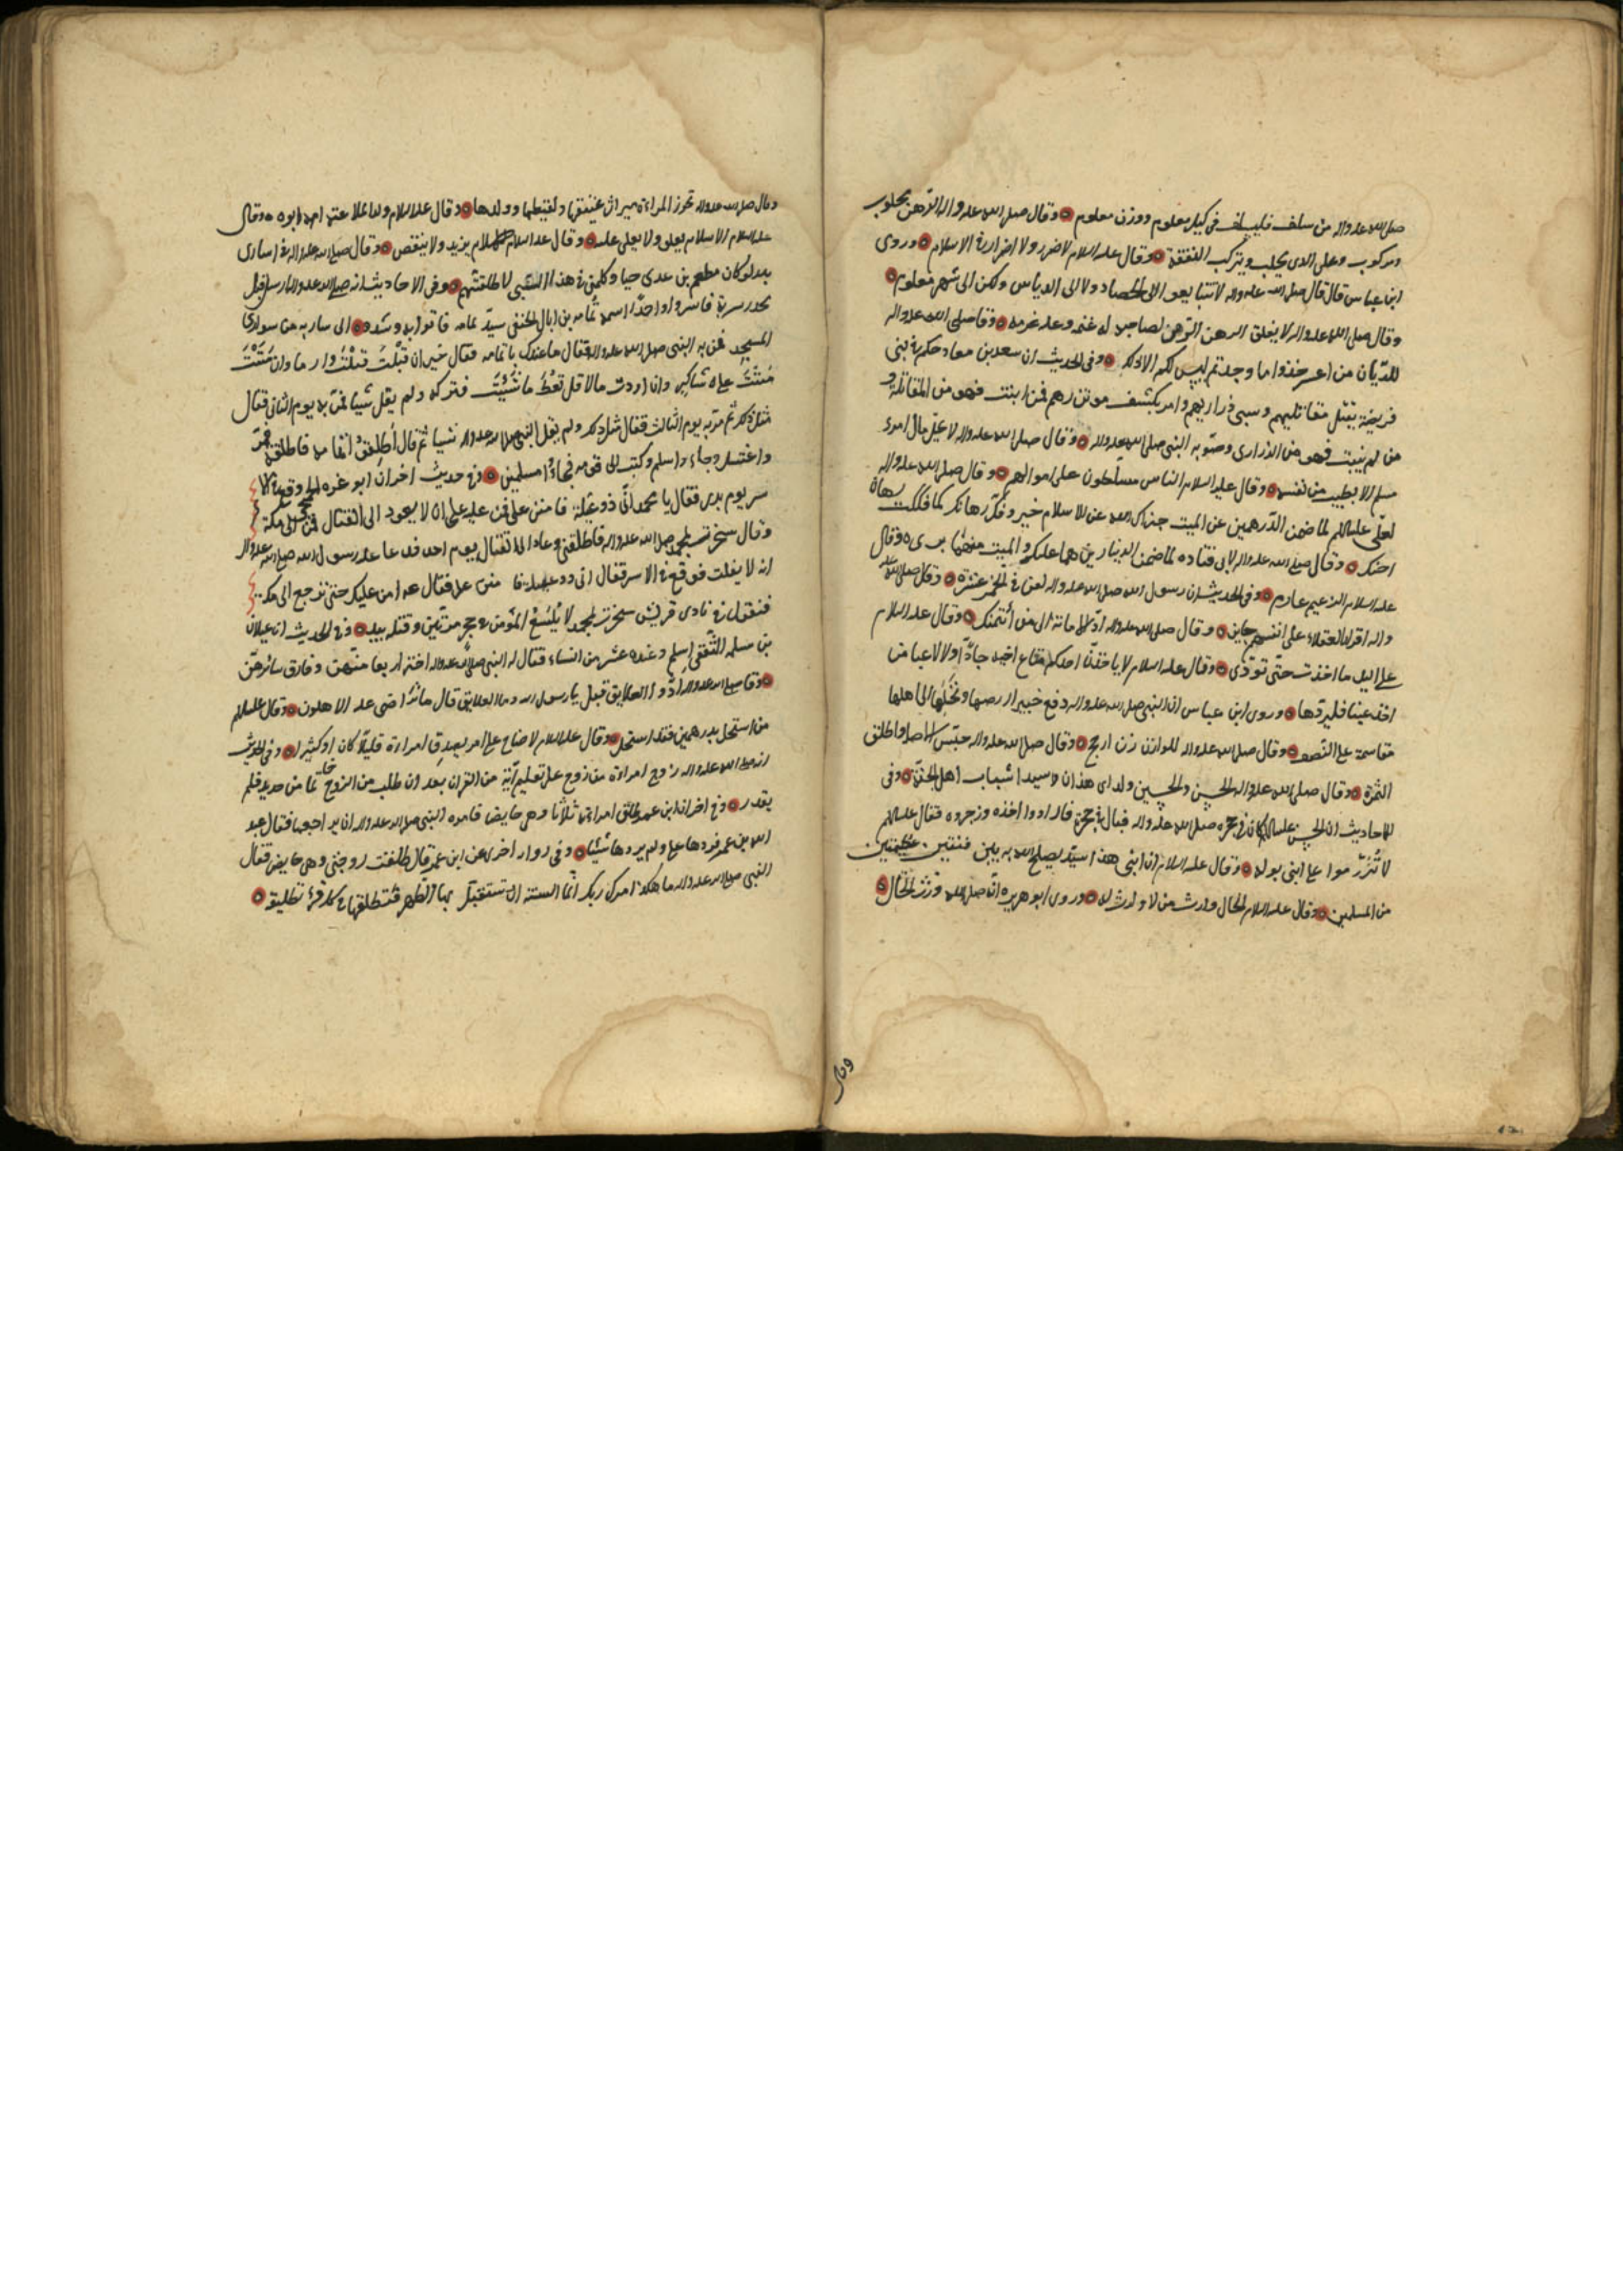 صلى الله عليه واله من سلف فليسلف في كيل معلوم ووزن معلوم ٥ وقال صلى الله عليه واله الرهن محلوب
ومركوب وعلى الذي يحلب ويركب النفقة ٥ وقال عليه السلام لا ضرر ولا اضرار في الاسلام ٥ وروى
ابن عباس قال قال صلى الله عليه واله لا تتبايعوا الى الحصاد ولا الى الدياس ولكن الى شهر معلوم ٥
وقال صلى الله عليه واله لا يغلق الرهن الرهن لصاحبه له غنمه وعليه غرمه ٥ وقا صلى الله عليه واله
للديان من اعسر خذوا ما وجدتم ليس لكم الا ذلك ٥ وفي الحديث ان سعد بن معاذ حكم في بني
قريضة بقتل مقاتليهم وسبي ذراريهم وامر بكشف موتزرهم فمن انبت فهو من المقاتلة و
من لم ينبت فهو من الذراري وصوبه النبي صلى الله عليه واله ٥ وقال صلى الله عليه واله لا يحل مال امرء
مسلم الا بطيب من نفسه ٥ وقال عليه السلام الناس مسلطون على اموالهم ٥ وقال صلى الله عليه واله
لعلي عليه السلم لما ضمن الدرهمين عن الميت جزاك الله عن الاسلام خير وفك رهانك كما فككت رهان
اخيك ٥ وقال صلى الله عليه واله لابي قتاده لما ضمن الدينارين هما عليك والميت منهما بري ٥ وقال
عليه السلام الزعيم غارم ٥ وفي الحديث ان رسول الله صلى الله عليه واله لعن في الخمر عشرة ٥ وقال صلى الله عليه
واله اقرار العقلاء على انفسهم جايز ٥ وقال صلى الله عليه واله اد الامانة الى من ائتمنك ٥ وقال عليه السلام
على اليد ما اخذت حتى تودي ٥ وقال عليه السلام لا ياخذن احدكم متاع اخيه جادا ولا لاعبا من
اخذ عينا فليردها ٥ وروى ابن عباس ان النبي صلى الله عليه واله دفع خيبر ارضها ونخلها الى اهلها
مقاسمة على النصف ٥ وقال صلى الله عليه واله للوازن زن ارجح ٥ وقال صلى الله عليه واله حبس الاصل واطلق
الثمرة ٥ وقال صلى الله عليه واله الحسن والحسين ولداي هذان سيدا شباب اهل الجنة ٥ وفي
الاحاديث ان الحسن عليه السلم كان في حجره صلى الله عليه واله فبال في حجره فارادوا اخذه وزجروه فقال عليه السلم
لا تزرموا على ابني بوله ٥ وقال عليه السلام ان ابني هذا سيد يصلح الله به بين فئتين عظيمتين
من المسلمين ٥ وقال عليه السلام الخال وارث من لا وارث له ٥ وروى ابو هريره انه صلى الله ورث الخال ٥
وقال
وقال صلى الله عليه واله تحرز المراءة ميراث عتيقها ولقيطها وولدها ٥ وقال عليه السلام ولد الملاعنه امه وابوه ٥ وقال
عليه السلام الاسلام يعلى ولا يعلى عليه ٥ وقال عليه السلام الاسلام يزيد ولا ينقص ٥ وقال صلى الله عليه واله في اسارى
بدر لو كان مطعم بن عدي حيا وكلمني في هذا السبي لاطلقتهم ٥ وفي الاحاديث انه صلى الله عليه واله ارسل قبل
نجد سرية فاسروا واحدا اسمه ثمامه بن اثال الحنفي سيد يمامه فاتوا به وشدوه الى ساريه من سواري
المسجد فمر به النبي صلى الله عليه واله فقال ما عندك يا ثمامه فقال خير ان قتلت قتلت وان مننت
مننت على شاكر وان اردت مالا قل تعط ما شئت فتركه ولم يقل شيا فمر به يوم الثاني فقال
مثل ذلك ثم مر به يوم الثالث فقال مثل ذلك ولم يقل النبي صلى الله عليه واله شيا ثم قال اطلقوا ثمامه فاطلقوه فمر
واغتسل وجاء واسلم وكتب الى قومه فجاؤا مسلمين ٥ وفي حديث اخر ان ابو غره الجمحي وقع في الا
سر يوم بدر فقال يا محمد اني ذو عيلة فامنن علي فمن عليه على ان لا يعود الى القتال فمر الى مكة
وقال سخرت بمحمد صلى الله عليه واله فاطلقني وعاد الى القتال يوم احد فدعا عليه رسول الله صلى الله عليه واله
ان لا يفلت فوقع في الاسر فقال اني ذو عيلة فامنن علي فقال عم امن عليك حتى ترجع الى مكة
فتقول في نادي قريش سخرت بمحمد لا يلسع المؤمن في جحر مرتين وقتله بيده ٥ وفي الحديث ان غيلان
بن سلمه الثقفي اسلم وعنده عشر من النساء فقال له النبي صلى الله عليه واله اختر اربعا منهن وفارق سائرهن
٥ وقا صلى الله عليه واله ادوا العلايق قيل يا رسول الله وما العلايق قال ما تراضى عليه الاهلون ٥ وقال عليه السلم
من استحل بدرهمين فقد استحل ٥ وقال عليه السلام لا جناح على امرء يصدق امراءة قليلا كان او كثيرا ٥ وفي الحديث
انه صلى الله عليه واله زوج امراءة من زوج على تعليم آية من القران بعد ان طلب من الزوج خاتما من حديد فلم
يقدر ٥ وفي اخر ان ابن عمر طلق امراته ثلاثا وهي حايض فامره النبي صلى الله عليه واله ان يراجعها فقال عبد
الله بن عمر فردها علي ولم يرها شيئا ٥ وفي رواية اخرى عن ابن عمر قال طلقت زوجتي وهي حايض فقال
النبي صلى الله عليه واله ما هكذا امرك ربك انما السنة ان تستقبل بها الطهر فتطلقها في كل قرء تطليقة ٥